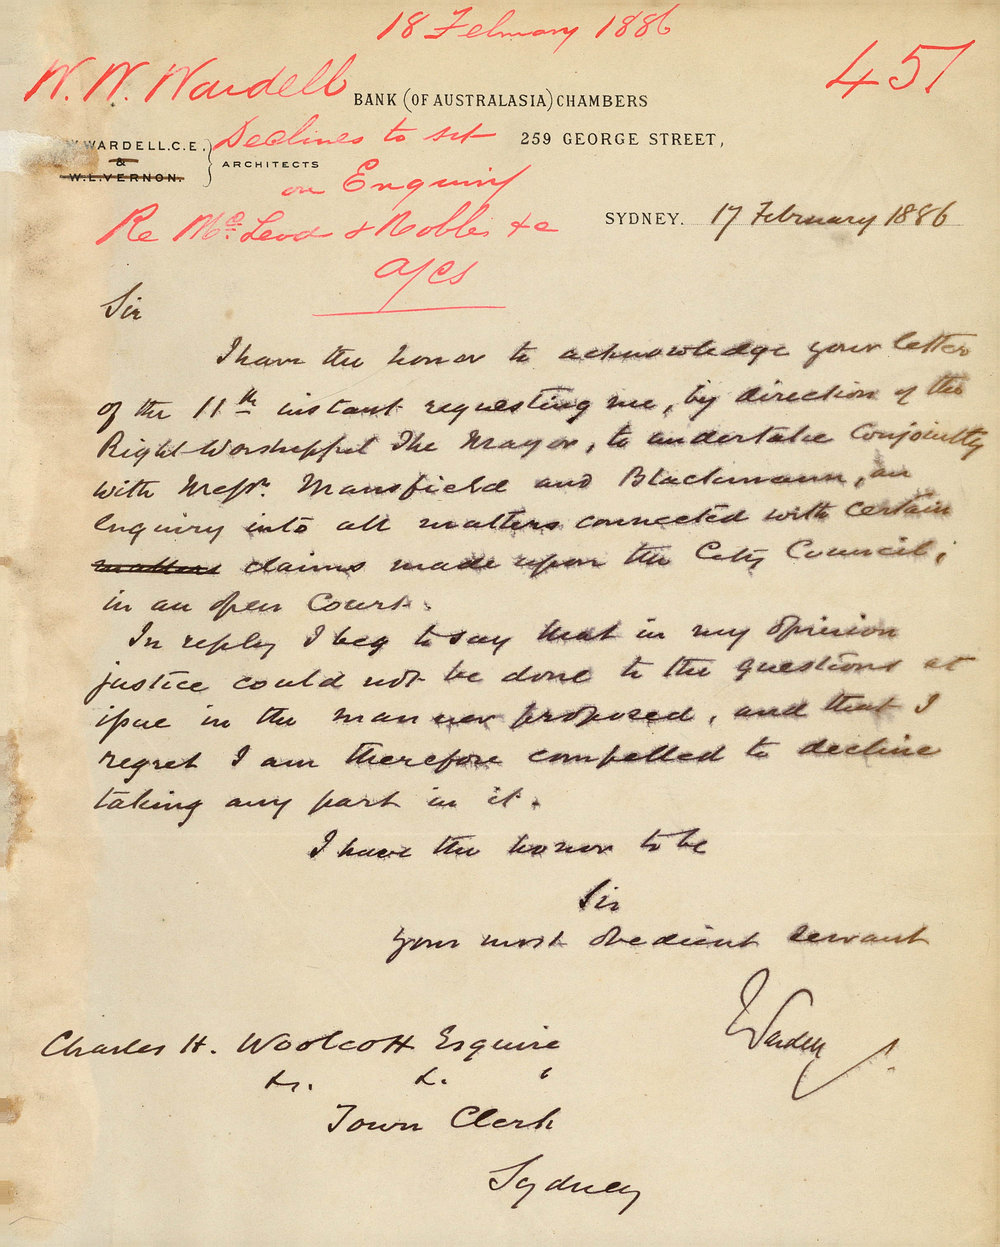 18 February 1886
W. W. Wardell
457
BANK (OF AUSTRALASIA) CHAMBERS
W. WARDELL.C.E.
&
W.L.VERNON.
ARCHITECTS
Declines to sit
259 GEORGE STREET,
on Enquiry
SYDNEY. 17 February 1886
Re McLeod & Nobles &c
a/cs
Sir
I have the honor to acknowledge your letter
of the 11th instant requesting me, by direction of the
Right Worshipful The Mayor, to undertake conjointly
with Messrs. Mansfield and Blackmann, an
enquiry into all matters connected with certain
matters claims made upon the City Council,
in an open Court.
In reply I beg to say that in my opinion
justice could not be done to the questions at
issue in the manner proposed, and that I
regret I am therefore compelled to decline
taking any part in it.
I have the honor to be
Sir
Your most obedient servant
Wardell
Charles H. Woolcott Esquire
&c. &c.
Town Clerk
Sydney